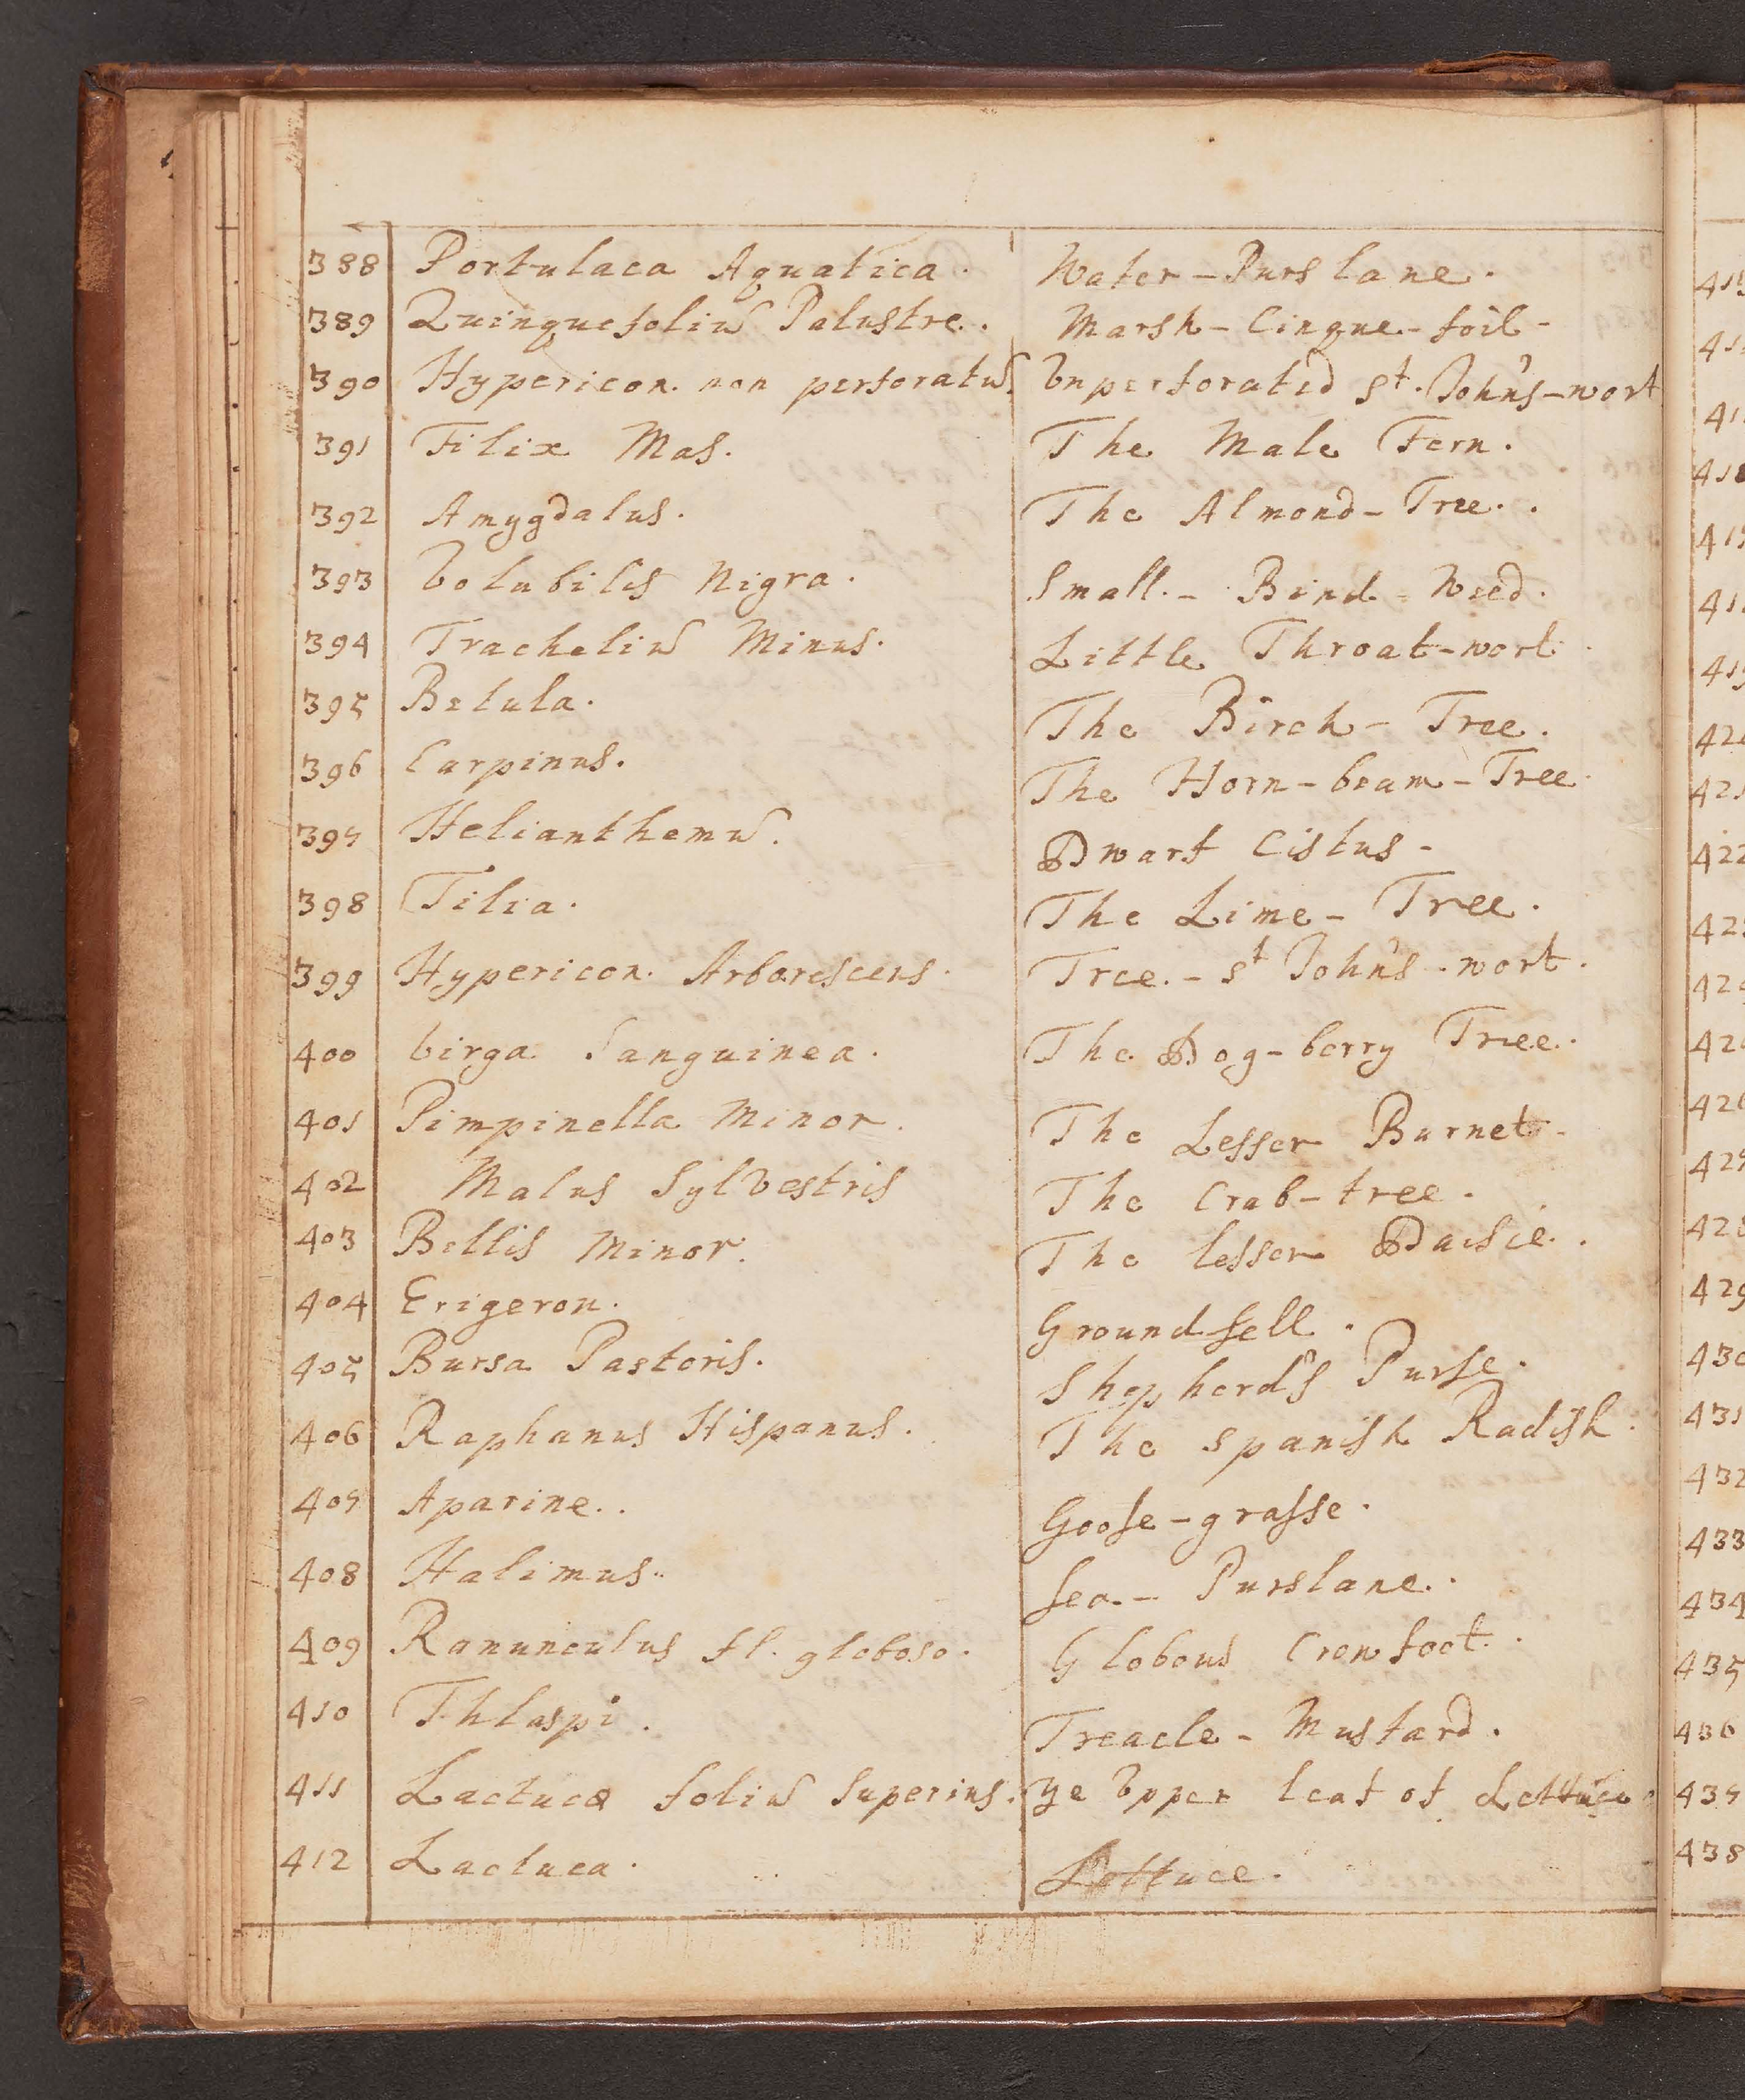 388 Portulaca Aquatica. Water-Purslane.
389 Quinquefoliũ Palustre. Marsh-Cinque-foil-
390 Hypericon non perforatũ. Vnperforated St. John's-wort
391 Filix Mas. The Male Fern.
392 Amygdalus. The Almond-Tree.
393 Volubilis Nigra. Small-Bind-Weed.
394 Tracheliũ Minus. Little Throat-wort
395 Betula. The Birch-Tree.
396 Carpinus. The Horn-beam-Tree
397 Helianthemũ. Dwarf Cistus-
398 Tilia. The Lime-Tree.
399 Hypericon Arborescens. Tree-St John's-wort.
400 Virga Sanguinea. The Dog-berry Tree.
401 Pimpinella Minor. The Lesser Burnet-
402 Malus Sylvestris The Crab-tree.
403 Bellis Minor. The lesser Daisie.
404 Erigeron. Groundsell.
405 Bursa Pastoris. Shepherd's Purse.
406 Raphanus Hispanus. The Spanish Radish.
407 Aparine. Goose-grasse.
408 Halimus. Sea-Purslane.
409 Ranunculus fl. globoso. Globous Crowfoot.
410 Thlaspi. Treacle-Mustard.
411 Lactucæ foliũ Superius. Ye Vpper leaf of Lettuce
412 Lactuca. Lettuce.
422
429
431
432
433
434
435
436
437
438